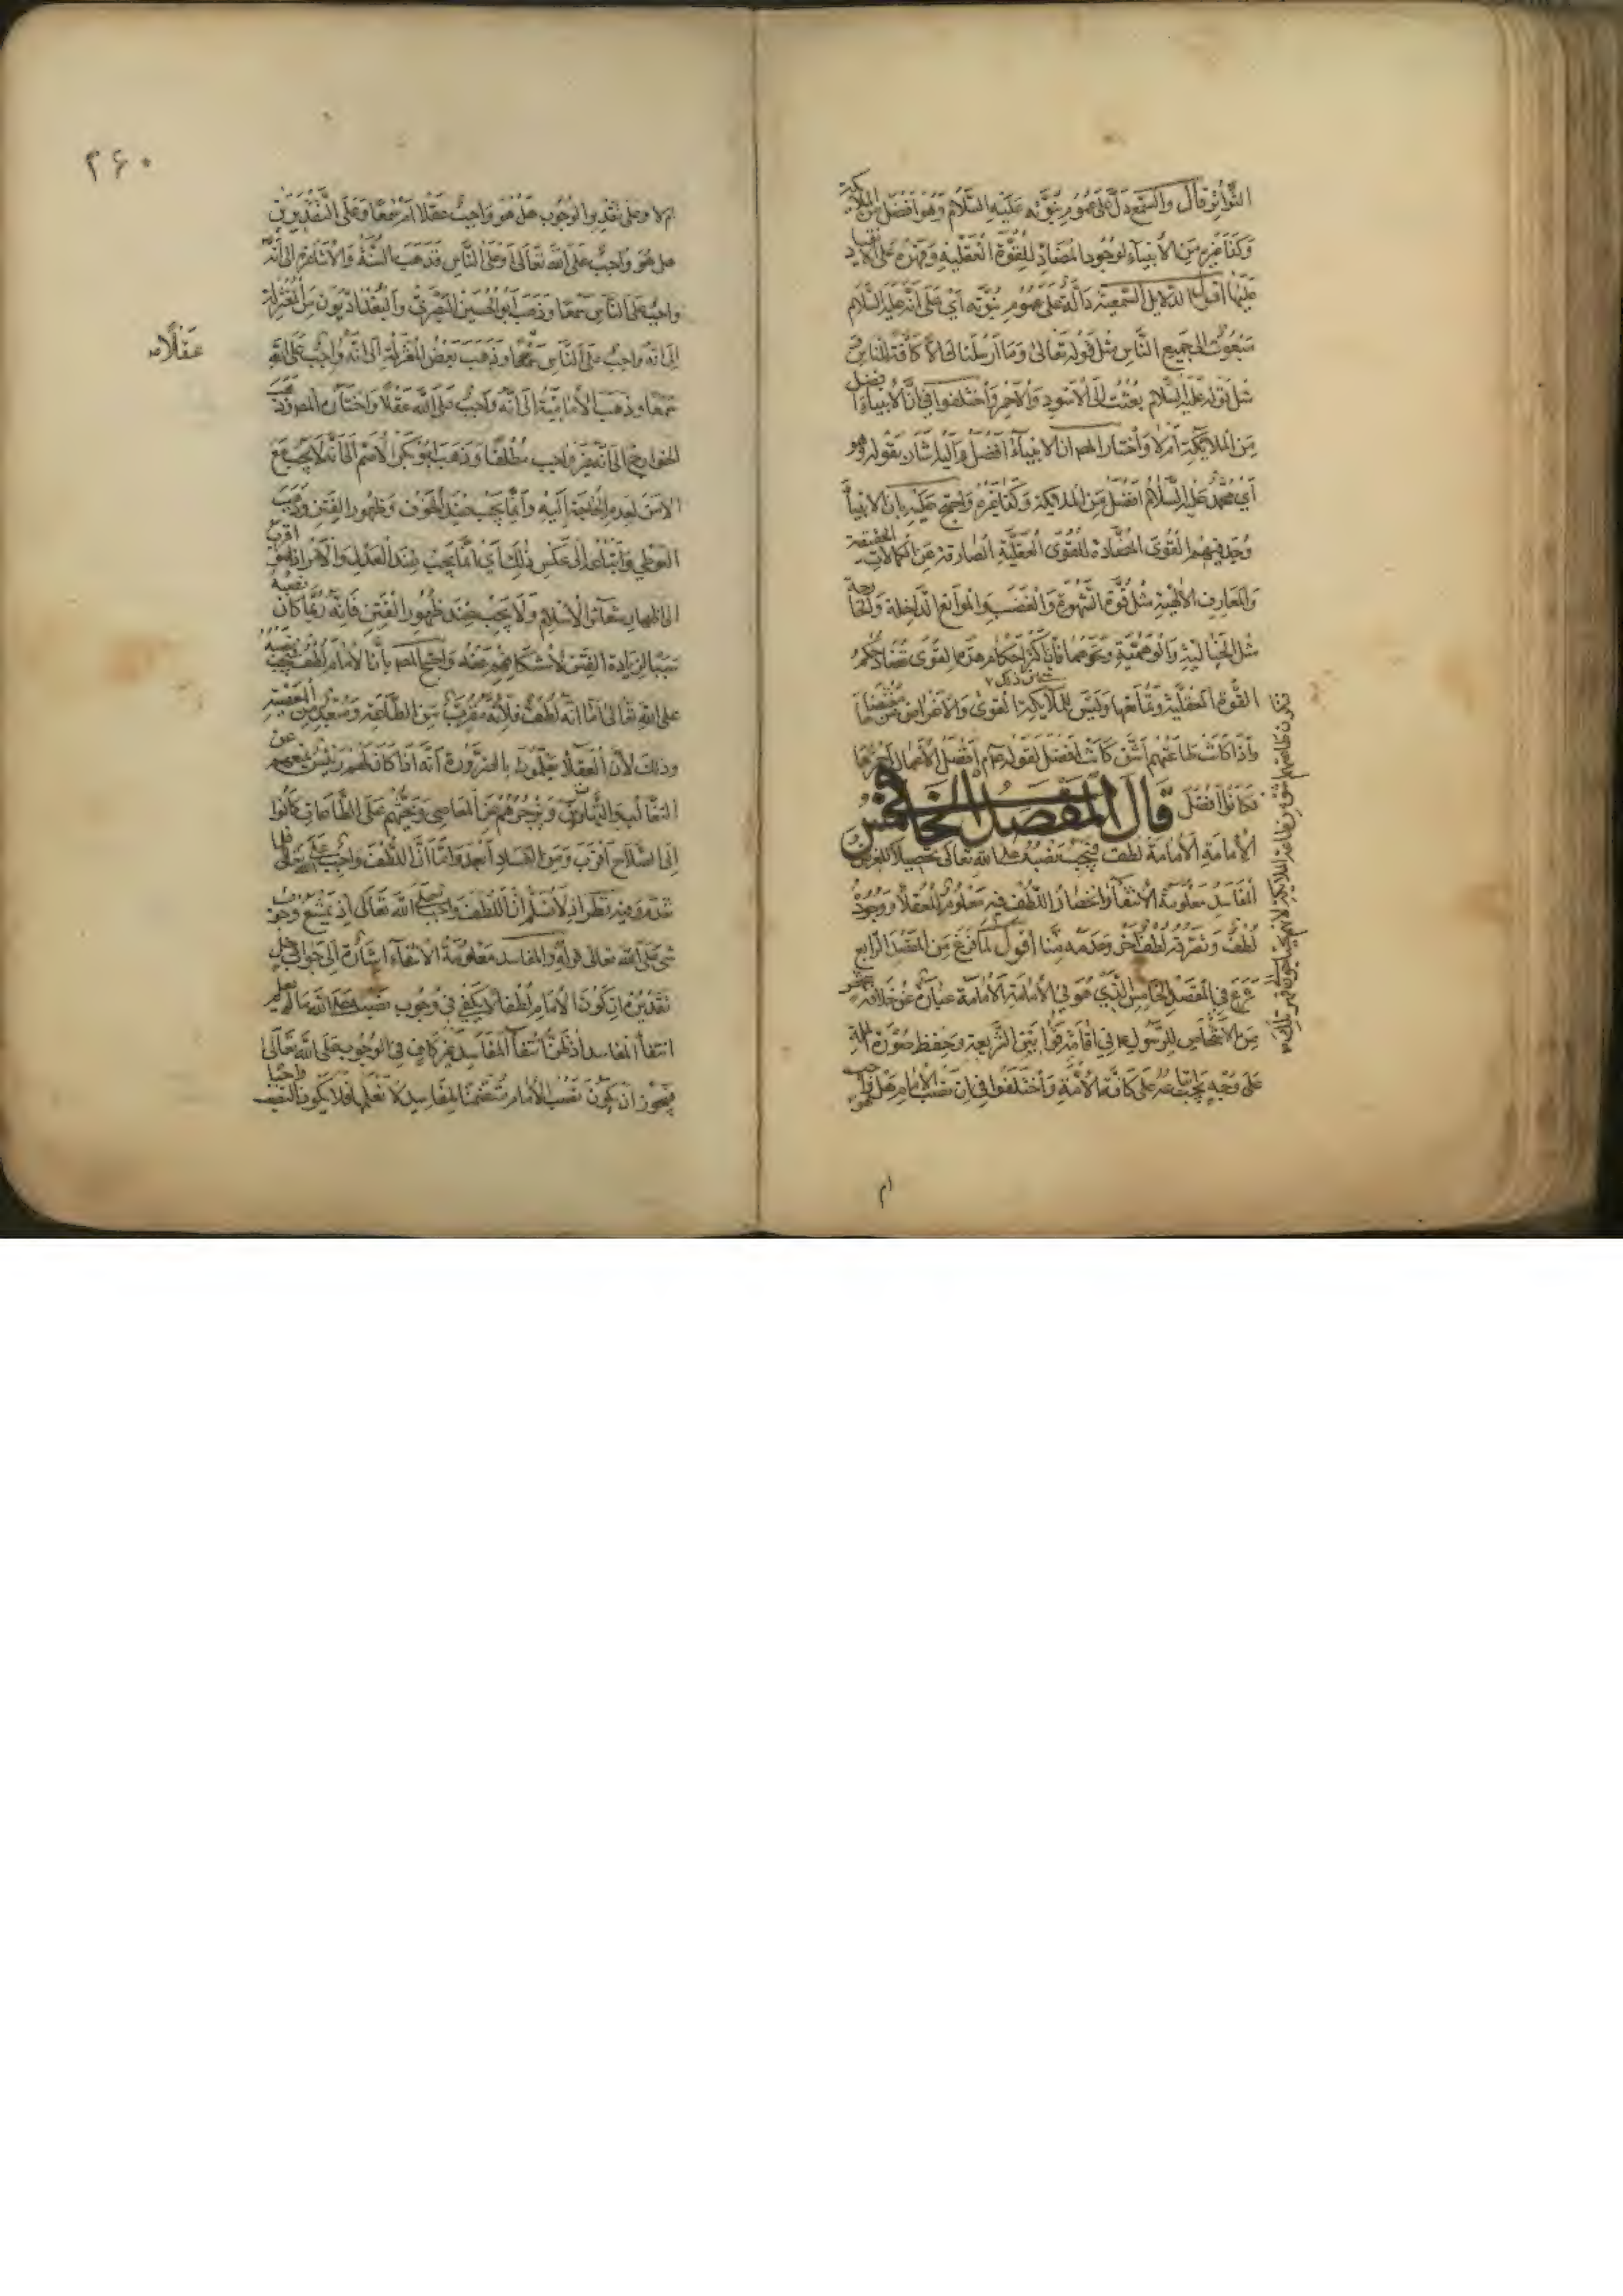 التواتر قال والسمع دل على عموم نبوته عليه السلام وهو افضل من الملائكة
وكذا غيره من الانبياء لوجود المضاد للقوة العقلية وقهره على الانقياد
عليها اقول الدلايل السمعية دالة على عموم نبوته اي على انه عليه السلام
مبعوث الى جميع الناس مثل قوله تعالى وما ارسلناك الا كافة للناس
مثل قوله عليه السلام بعثت الى الاسود والاحمر واختلفوا في ان الانبياء افضل
من الملايكة ام لا واختار المص ان الانبياء افضل واليه اشار بقوله وهو
اي محمد عليه السلام افضل من الملايكة وكذا غيره واحتج عليه بان الانبياء
وجد فيهم القوى المضادة للقوى العقلية الصارفة عن الكمالات الحقيقية
والمعارف الالهية مثل قوة الشهوة والغضب والموانع الداخلة والخارجة
مثل الخيالية والوهمية وغيرهما فان اكثر احكام هذه القوى تضاد حكم
القوة العقلية وتمانعها وليس للملايكة القوى والاغراض
شان ذلك
واذا كانت طاعتهم اشق كانت افضل لقوله عم افضل الاعمال احمزها
فكانوا افضل قال المقصد الخامس في
الامامة الامام لطف فيجب نصبه على الله تعالى تحصيلا للغرض
المفاسد معلومة الانتفاء وانحصار اللطف فيه معلوم للعقلاء ووجوده
لطف وتصرفه لطف اخر وعدمه منا اقول لما فرغ من المقصد الرابع
شرع في المقصد الخامس الذي هو في الامامة الامامة عبارة عن خلافة شخص
من الاشخاص للرسول عم في اقامة قوانين الشريعة وحفظ حوزة الملة
على وجه يجب اتباعه على كافة الامة واختلفوا في ان نصب الامام هل هو واجب
ام
۲۶۰
ام لا وعلى تقدير الوجوب هل هو واجب عقلا ام سمعا وعلى التقديرين
هل هو واجب على الله تعالى او على الناس فذهب السنة والاشاعرة الى انه
واجب على الناس سمعا وذهب ابو الحسين البصري والبغداديون من المعتزلة
الى انه واجب على الناس سمعا وذهب بعض المعتزلة الى انه واجب على الله
عقلا
سمعا وذهب الامامية الى انه واجب على الله عقلا واختاره المص وذهب
الخوارج الى انه غير واجب مطلقا وذهب ابو بكر الاصم الى انه لا يجب مع
الامن لعدم الحاجة اليه وانما يجب عند الخوف وظهور الفتن وذهب
الفوطي واتباعه الى عكس ذلك اي انما يجب عند العدل والامن اذ هو اقرب
الى اظهار شعائر الاسلام ولا يجب عند ظهور الفتن فانه ربما كان نصبه
سببا لزيادة الفتن لاستنكافهم عنه واحتج المص بان الامام لطف فيجب نصبه
على الله تعالى اما انه لطف فلانه مقرب من الطاعة ومبعد من المعصية
وذلك لان العقلاء يعلمون بالضرورة انه اذا كان لهم رئيس يمنعهم عن
التغالب والتهاوش ويزجرهم عن المعاصي ويحثهم على الطاعات كانوا
الى الصلاح اقرب ومن الفساد ابعد واما ان اللطف واجب على الله تعالى فلما
تقدم وفيه نظر اذ لا نسلم ان اللطف واجب على الله تعالى اذ يمتنع وجوب
شي على الله تعالى قوله والمفاسد معلومة الانتفاء اشارة الى جواب دخل
تقديره ان كون الامام لطفا لا يكفي في وجوب نصبه على الله ما لم يعلم
انتفاء المفاسد اذ ظن انتفاء المفاسد غير كاف في الوجوب على الله تعالى
فيجوز ان يكون نصب الامام متضمنا لمفاسد لا نعلمها فلا يكون النصب واجبا